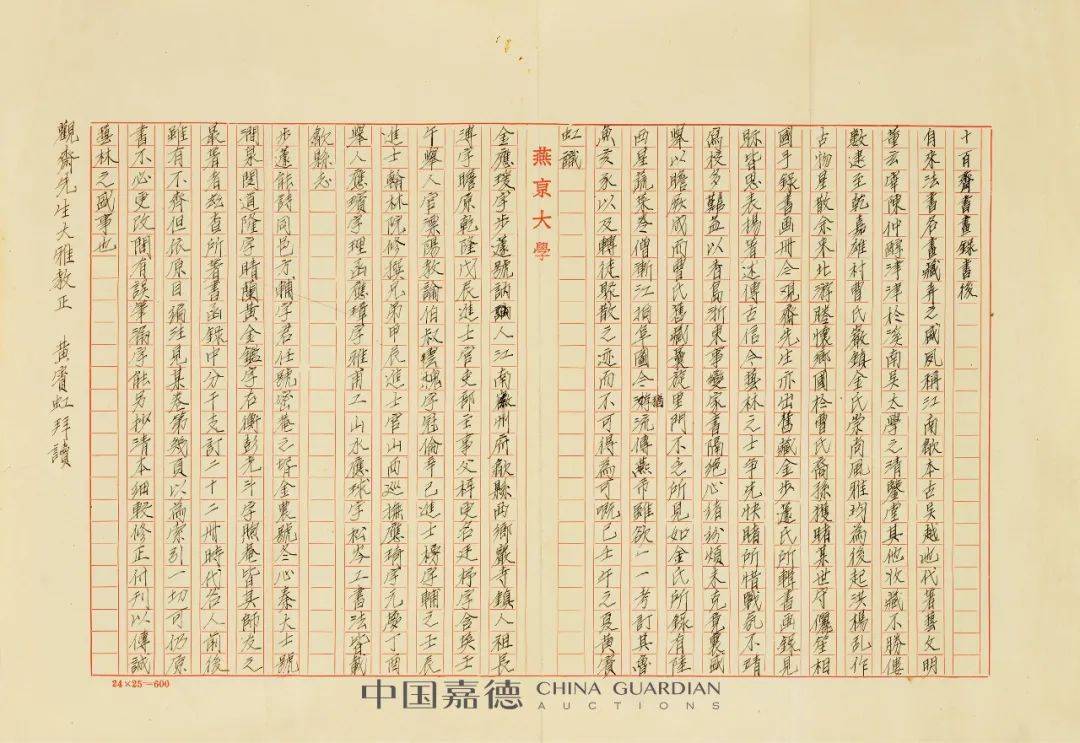 十百齋書畫錄書後
自來法書名畫藏弆之盛風稱江南歙本古吳越地代著藝文明
董玄宰陳仲醇津津於溪南吳太學之清鑒虛其他收藏不勝僂
數逮至乾嘉雄村曹氏巖鎮金氏崇尚風雅均為後起洪楊亂作
古物星散余來北游勝懷鄉國於曹氏裔孫獲睹某世守儷笙相
國手錄書畫冊今觀齋先生亦出舊藏金步蓮氏所輯書畫錄見
眎皆思表揚著述傳古信今藝林之士爭先快睹所惜戰氛不靖
寫校多艱益以香島浙東事變家書隔絕心緒紛煩未克竟襄盛
舉以贍族咸而曹氏舊藏曩旋里門不乏所見如金氏所錄有陸
西星蔬果卷僧漸江崗阜圖今猶流傳燕市雖欲一一考訂其魯
魚亥豕以及轉徙聚散之迹而不可得為可嘅已壬午之夏黃賓
虹識
燕京大學
金應璞字步蓮號訥人江南徽州府歙縣西鄉巖寺鎮人祖長
溥字瞻原乾隆戊辰進士官吏部主事父桴更名廷桴字含英壬
午舉人官溧陽教諭伯叔雲槐字冠倫辛巳進士榜字輔之壬辰
進士翰林院修撰兄弟甲辰進士官山西巡撫應琦字元慶丁酉
舉人應瓊字理函應瑋字雅甫工山水應球字松岑工書法皆載
歙縣志
步蓮能詩同邑方輔字君任號密菴之壻金農號冬心秦大士號
澗泉閔道隆字晴蘭黃金鑑字在衡彭元斗字照菴皆其師友之
最著者茲查所著書畫錄中分干支訂二十二冊時代名人前後
雖有不齊但依原目編注見某卷第幾頁以為索引一切可仍原
書不必更改間有誤筆漏字能另抄清本細較修正付刊以傳誠
藝林之盛事也
觀齋先生大雅教正 黃賓虹拜讀
24×25=600
中国嘉德 CHINA GUARDIAN
AUCTIONS